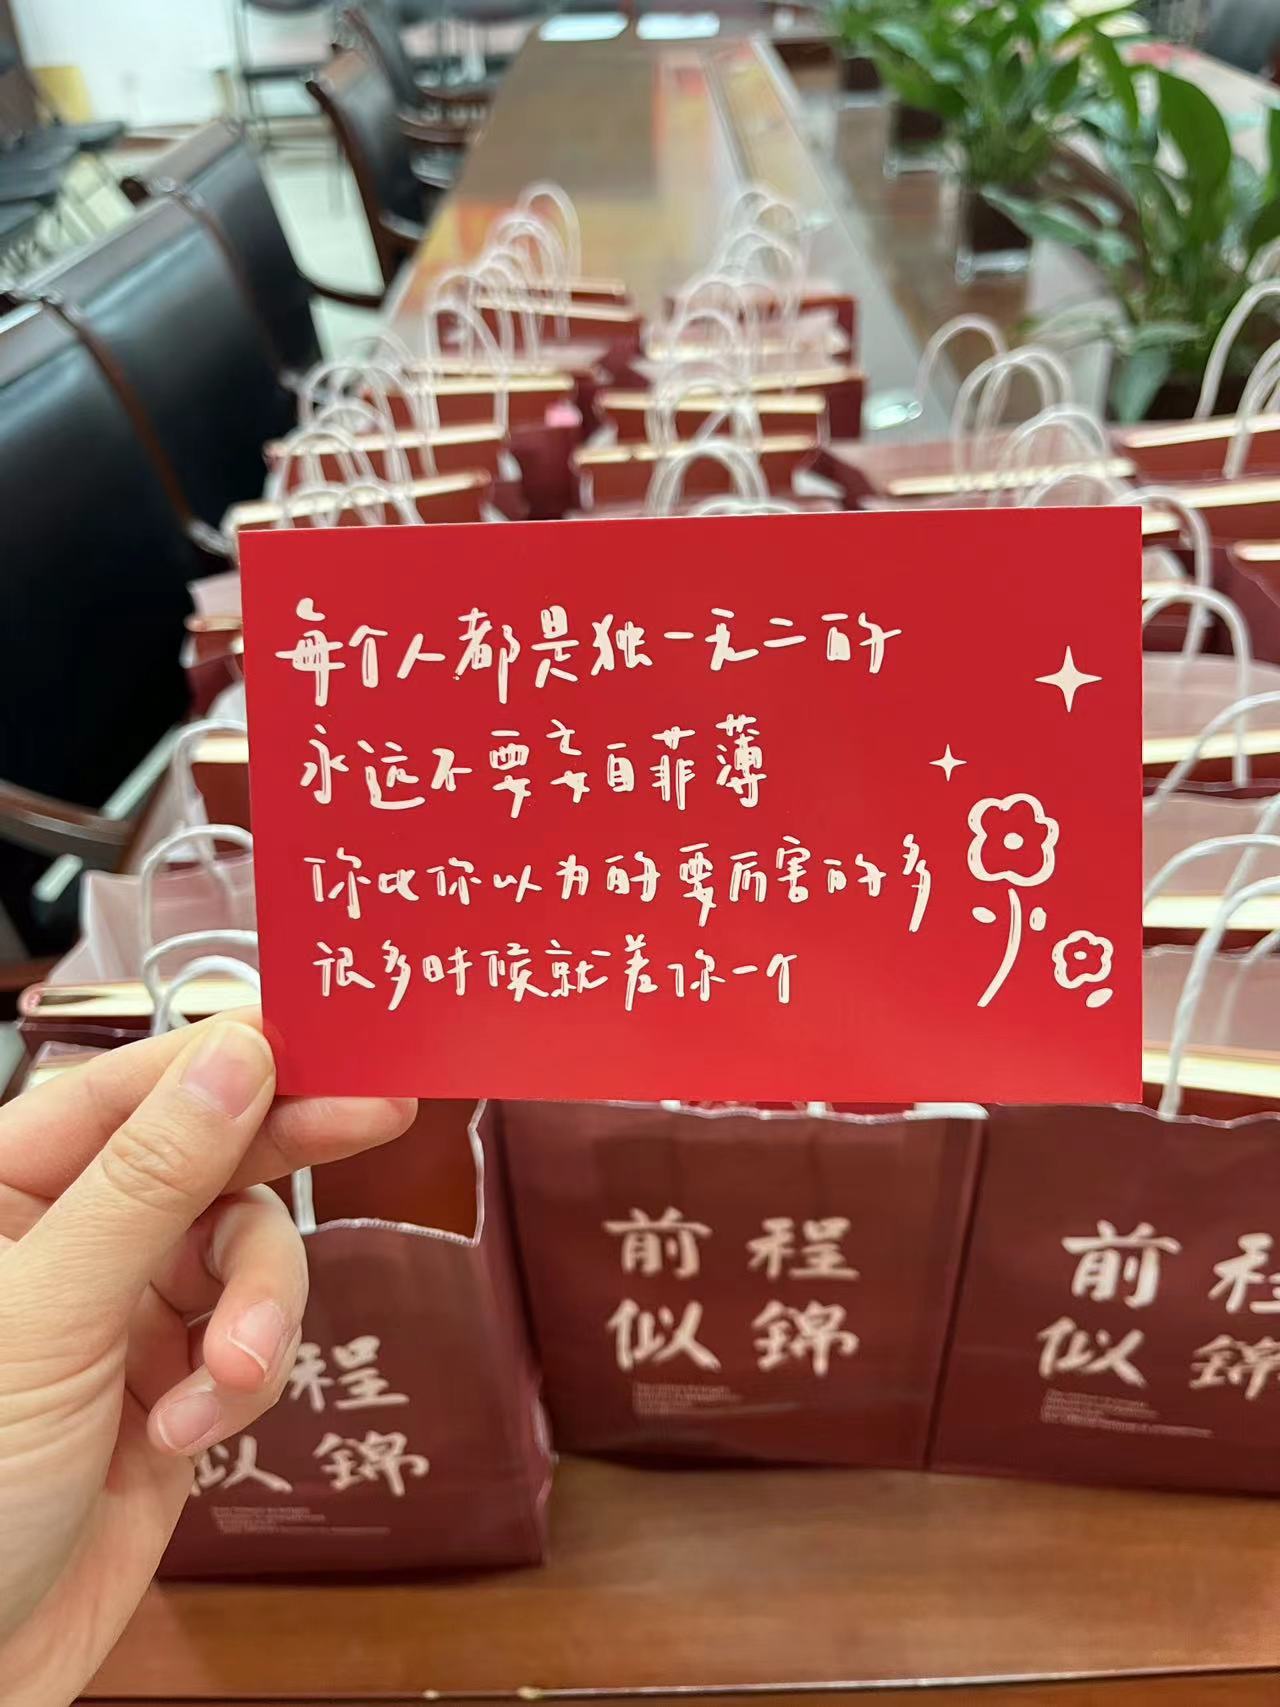 每个人都是独一无二的
永远不要妄自菲薄
你比你以为的要厉害的多
很多时候就差你一个
前程
似錦
前程
似錦
程
似錦